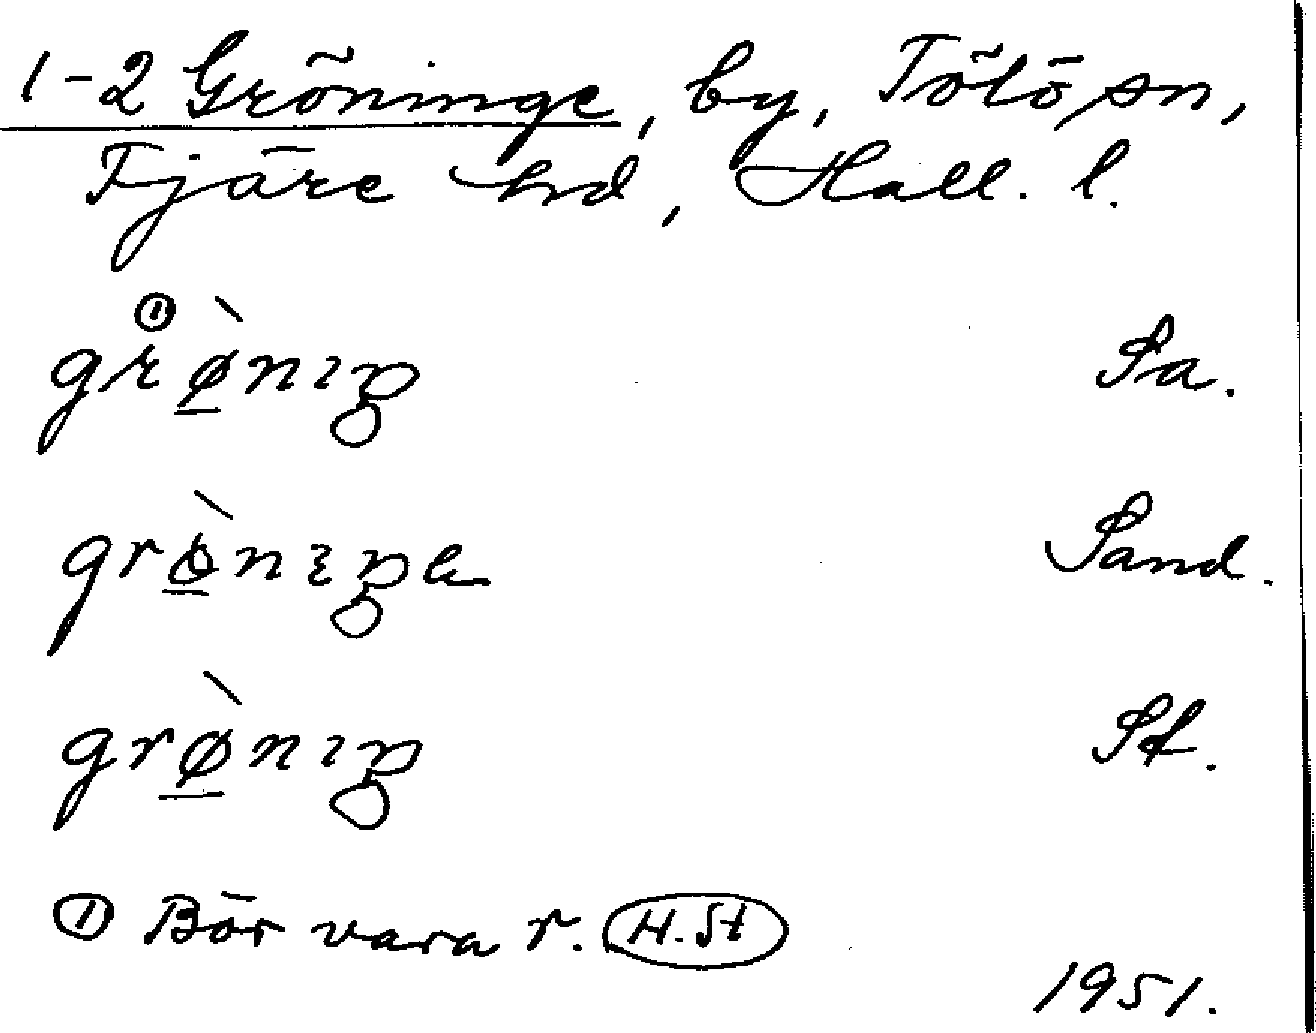 1-2 Gröninge, by, Tölö sn,
Fjäre hd, Hall. l.
①
grø̲̀nıŋ Sa.
grø̲̀nıŋə Sand.
grø̲̀nıŋ St.
① Bör vara r. H. St
1951.